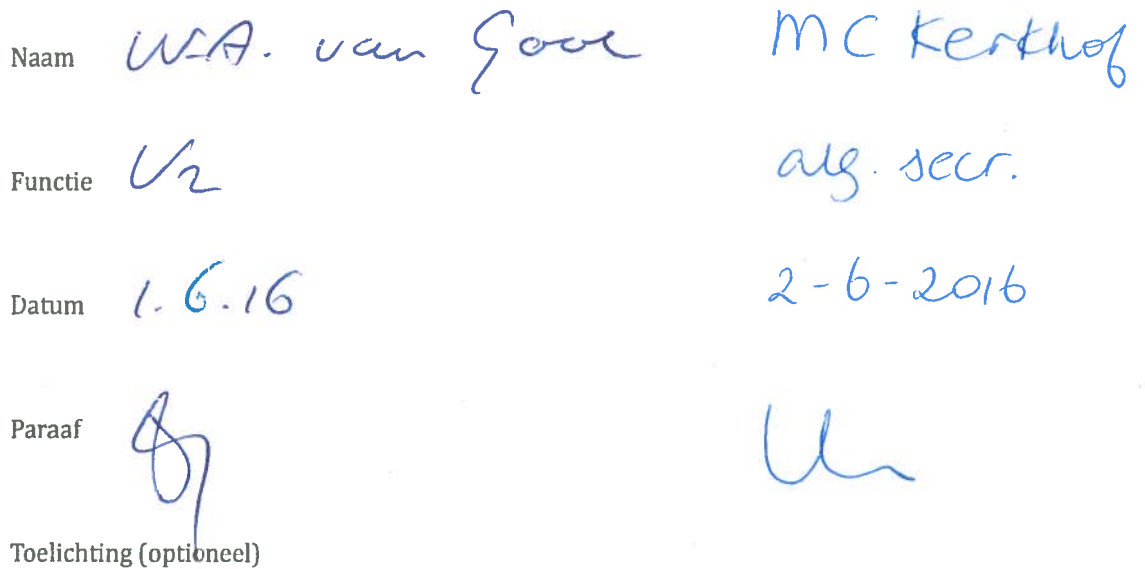 Naam W.A. van Gool MC Kerkhof
Functie Vz alg. secr.
Datum 1.6.16 2-6-2016
Paraaf
Toelichting (optioneel)